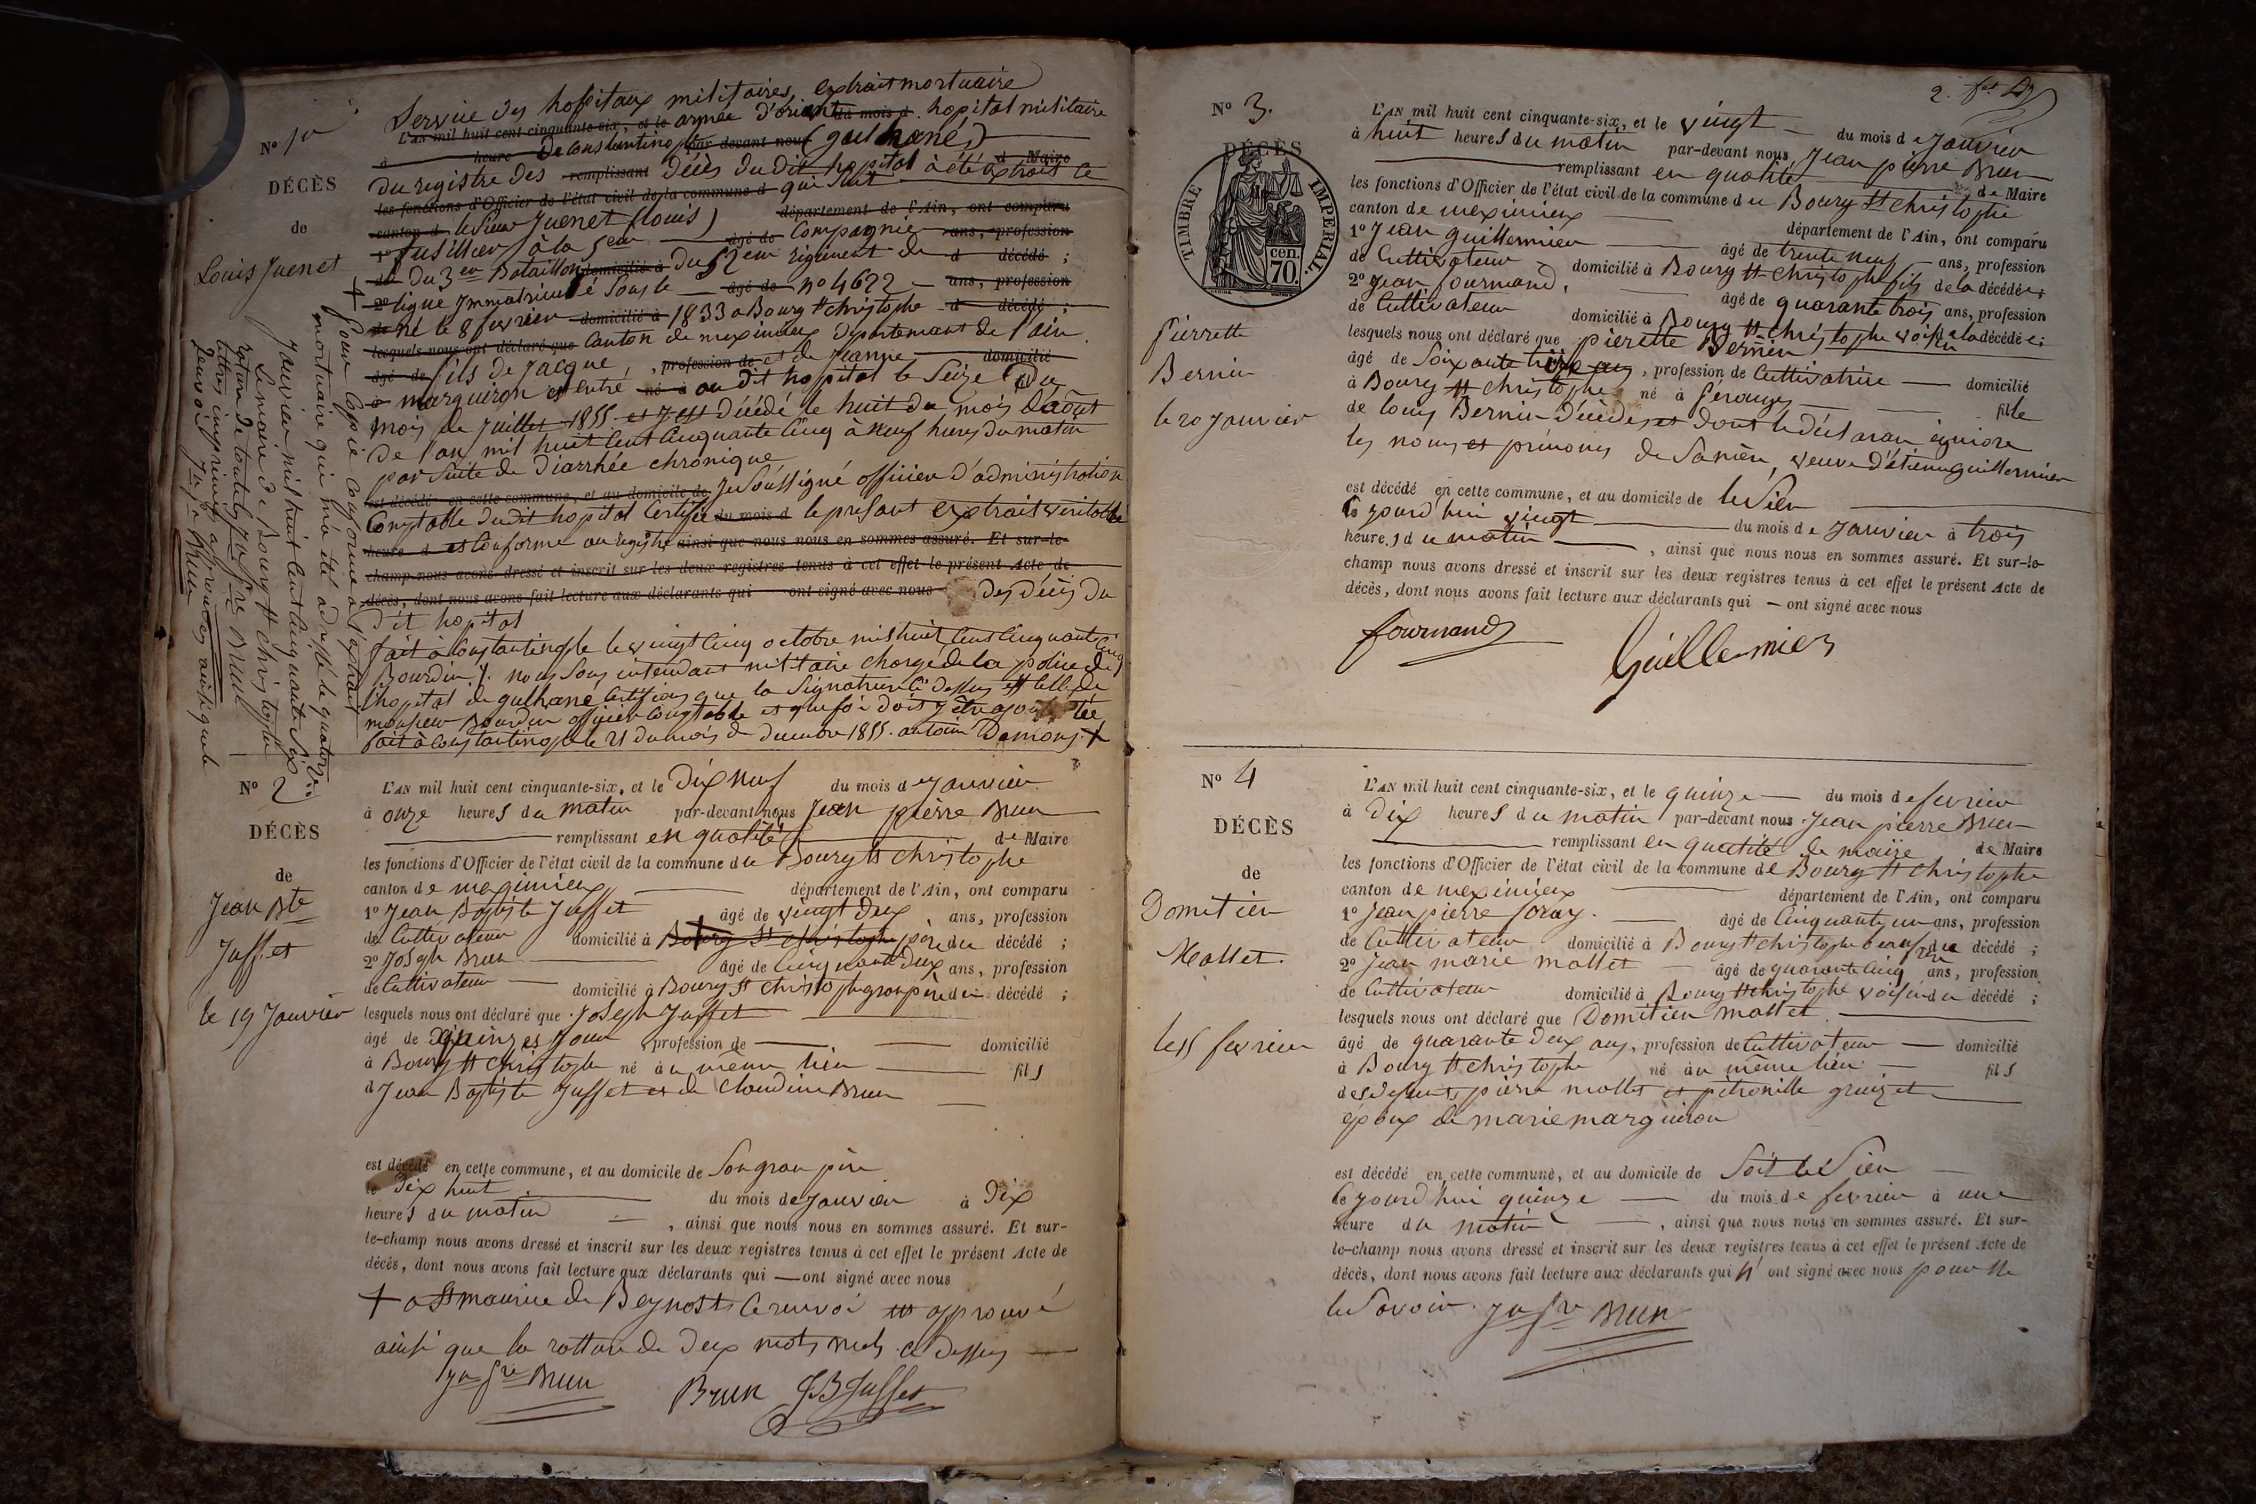 Service des hopitaux militaires, extrait mortuaire
N° 1er
L'AN mil huit cent cinquante-six, et le armée d'orient du mois d hopital militaire
à heure De Constantinople par-devant nous (gulhané)
DÉCÈS
du registre des remplissant Décès du dit hopital à été extrait ce d Maire
les fonctions d'Officier de l'état civil de la commune d qui suit
de
canton d le sieur Juenet (louis) département de l'Ain, ont comparu
fusillier à la 5eme âgé de Compagnie ans, profession
Louis Juenet
de du 3eme Bataillon domicilié à du 52eme régiment de d décédé ;
2° ligne Immatriculé sous le âgé de n° 4622 ans, profession
de né le 8 fevrier domicilié à 1833 a Bourg St christophe d décédé ;
lesquels nous ont déclaré que Canton de meximieux département de l'ain
âgé de fils de Jacque , profession de et de Jeanne domicilié
à marguiron est entré né à au dit hopital le Seize Du
mois de Juillet 1855 et y est décédé le huit du mois d'août
De l'an mil huit cent cinquante cinq à neuf heures du matin
par suite de Diarrhée chronique
est décédé en cette commune, et au domicile de Je soussigné officier d'administration
Comptable du dit hopital Certifie du mois d le present extrait véritable
heure d et Conforme au registre ainsi que nous nous en sommes assuré. Et sur-le-
champ nous avons dressé et inscrit sur les deux registres tenus à cet effet le présent Acte de
décès, dont nous avons fait lecture aux déclarants qui ont signé avec nous des décès du
Dit hopital
fait à Constantinople le vingt cinq octobre mil huit cent cinquante cinq
Bourdin /. nous sous intendant militaire chargé de la police de
l'hopital de gulhané Certifions que la signature ci dessus est celle de
monsieur Bourdin officier Comptable et que foi doit y être ajoutée
fait à Constantinople le 21 du mois de decembre 1855. antoine Demons +
+ Pour Copie conforme a l'extrait
mortuaire qui m'a été adressé le quatorze
Janvier mil huit cent cinquante six
Le maire de Bourg St christophe
Jn pre Brun
N° 2
DÉCÈS
de
Jean Bte
Juffet
le 19 Janvier
L'AN mil huit cent cinquante-six, et le Dix neuf du mois de Janvier
à onze heures du matin par-devant nous Jean pierre Brun
remplissant en qualité de Maire
les fonctions d'Officier de l'état civil de la commune de Bourg St christophe
canton de meximieux département de l'Ain, ont comparu
1° Jean Baptiste Juffet âgé de vingt deux ans, profession
de Cultivateur domicilié à + Bourg St christophe père du décédé ;
2° Joseph Brun âgé de Cinquante deux ans, profession
de Cultivateur domicilié à Bourg St christophe gran père du décédé ;
lesquels nous ont déclaré que Joseph Juffet
âgé de quinzes Jour profession de domicilié
à Bourg St christophe né au même lieu fils
d Jean Baptiste Juffet et de Claudine Brun
est décédé en cette commune, et au domicile de Son gran père
le Dix huit du mois de Janvier à Dix
heures du matin , ainsi que nous nous en sommes assuré. Et sur-
le-champ nous avons dressé et inscrit sur les deux registres tenus à cet effet le présent Acte de
décès, dont nous avons fait lecture aux déclarants qui ont signé avec nous
+ a St maurice de Beynost Ce renvoi approuvé
ainsi que la rature de Deux mots nuls ci dessus
Jn pre Brun Brun JB Juffet
2.
N° 3.
DÉCÈS
TIMBRE IMPÉRIAL.
cen. 70.
Pierrette
Bernin
le 20 Janvier
L'AN mil huit cent cinquante-six, et le vingt du mois de Janvier
à huit heures du matin par-devant nous Jean pierre Brun
remplissant en qualité de Maire
les fonctions d'Officier de l'état civil de la commune de Bourg St christophe
canton de meximieux département de l'Ain, ont comparu
1° Jean guillermier âgé de trente neuf ans, profession
de Cultivateur domicilié à Bourg St christophe fils de la décédée ;
2° Jean fournand, âgé de quarante trois ans, profession
de Cultivateur domicilié à Bourg St christophe voisin de la décédée ;
lesquels nous ont déclaré que pierette Bernin
âgé de Soixante ans, profession de Cultivatrice domicilié
à Bourg St christophe né à Pérouges fille
de louis Bernin Décédé et dont le déclaran ignore
les noms et prénoms de Sa mère, veuve d'étienne guillermier
est décédé en cette commune, et au domicile de le Sien
le jourd'hui vingt du mois de Janvier à trois
heures du matin , ainsi que nous nous en sommes assuré. Et sur-le-
champ nous avons dressé et inscrit sur les deux registres tenus à cet effet le présent Acte de
décès, dont nous avons fait lecture aux déclarants qui — ont signé avec nous
fournand
Guillermier
N° 4
DÉCÈS
de
Domitien
Mollet.
le 15 fevrier
L'AN mil huit cent cinquante-six, et le quinze du mois de fevrier
à Dix heures du matin par-devant nous Jean pierre Brun
remplissant en qualité de maire de Maire
les fonctions d'Officier de l'état civil de la commune de Bourg St christophe
canton de meximieux département de l'Ain, ont comparu
1° Jean pierre Joray. âgé de Cinquante un ans, profession
de Cultivateur domicilié à Bourg St christophe beau frère du décédé ;
2° Jean marie mollet âgé de quarante cinq ans, profession
de Cultivateur domicilié à Bourg St christophe voisin du décédé ;
lesquels nous ont déclaré que Domitien mollet
âgé de quarante Deux ans, profession de Cultivateur domicilié
à Bourg St christophe né au même lieu fils
des defunts pierre mollet et pétronille
époux de marie marguiron
est décédé en cette commune, et au domicile de Soit le Sien
le jourd'hui quinze du mois de fevrier à une
heure du matin , ainsi que nous nous en sommes assuré. Et sur-
le-champ nous avons dressé et inscrit sur les deux registres tenus à cet effet le présent Acte de
décès, dont nous avons fait lecture aux déclarants qui n' ont signé avec nous pour ne
le Savoir. Jn pre Brun